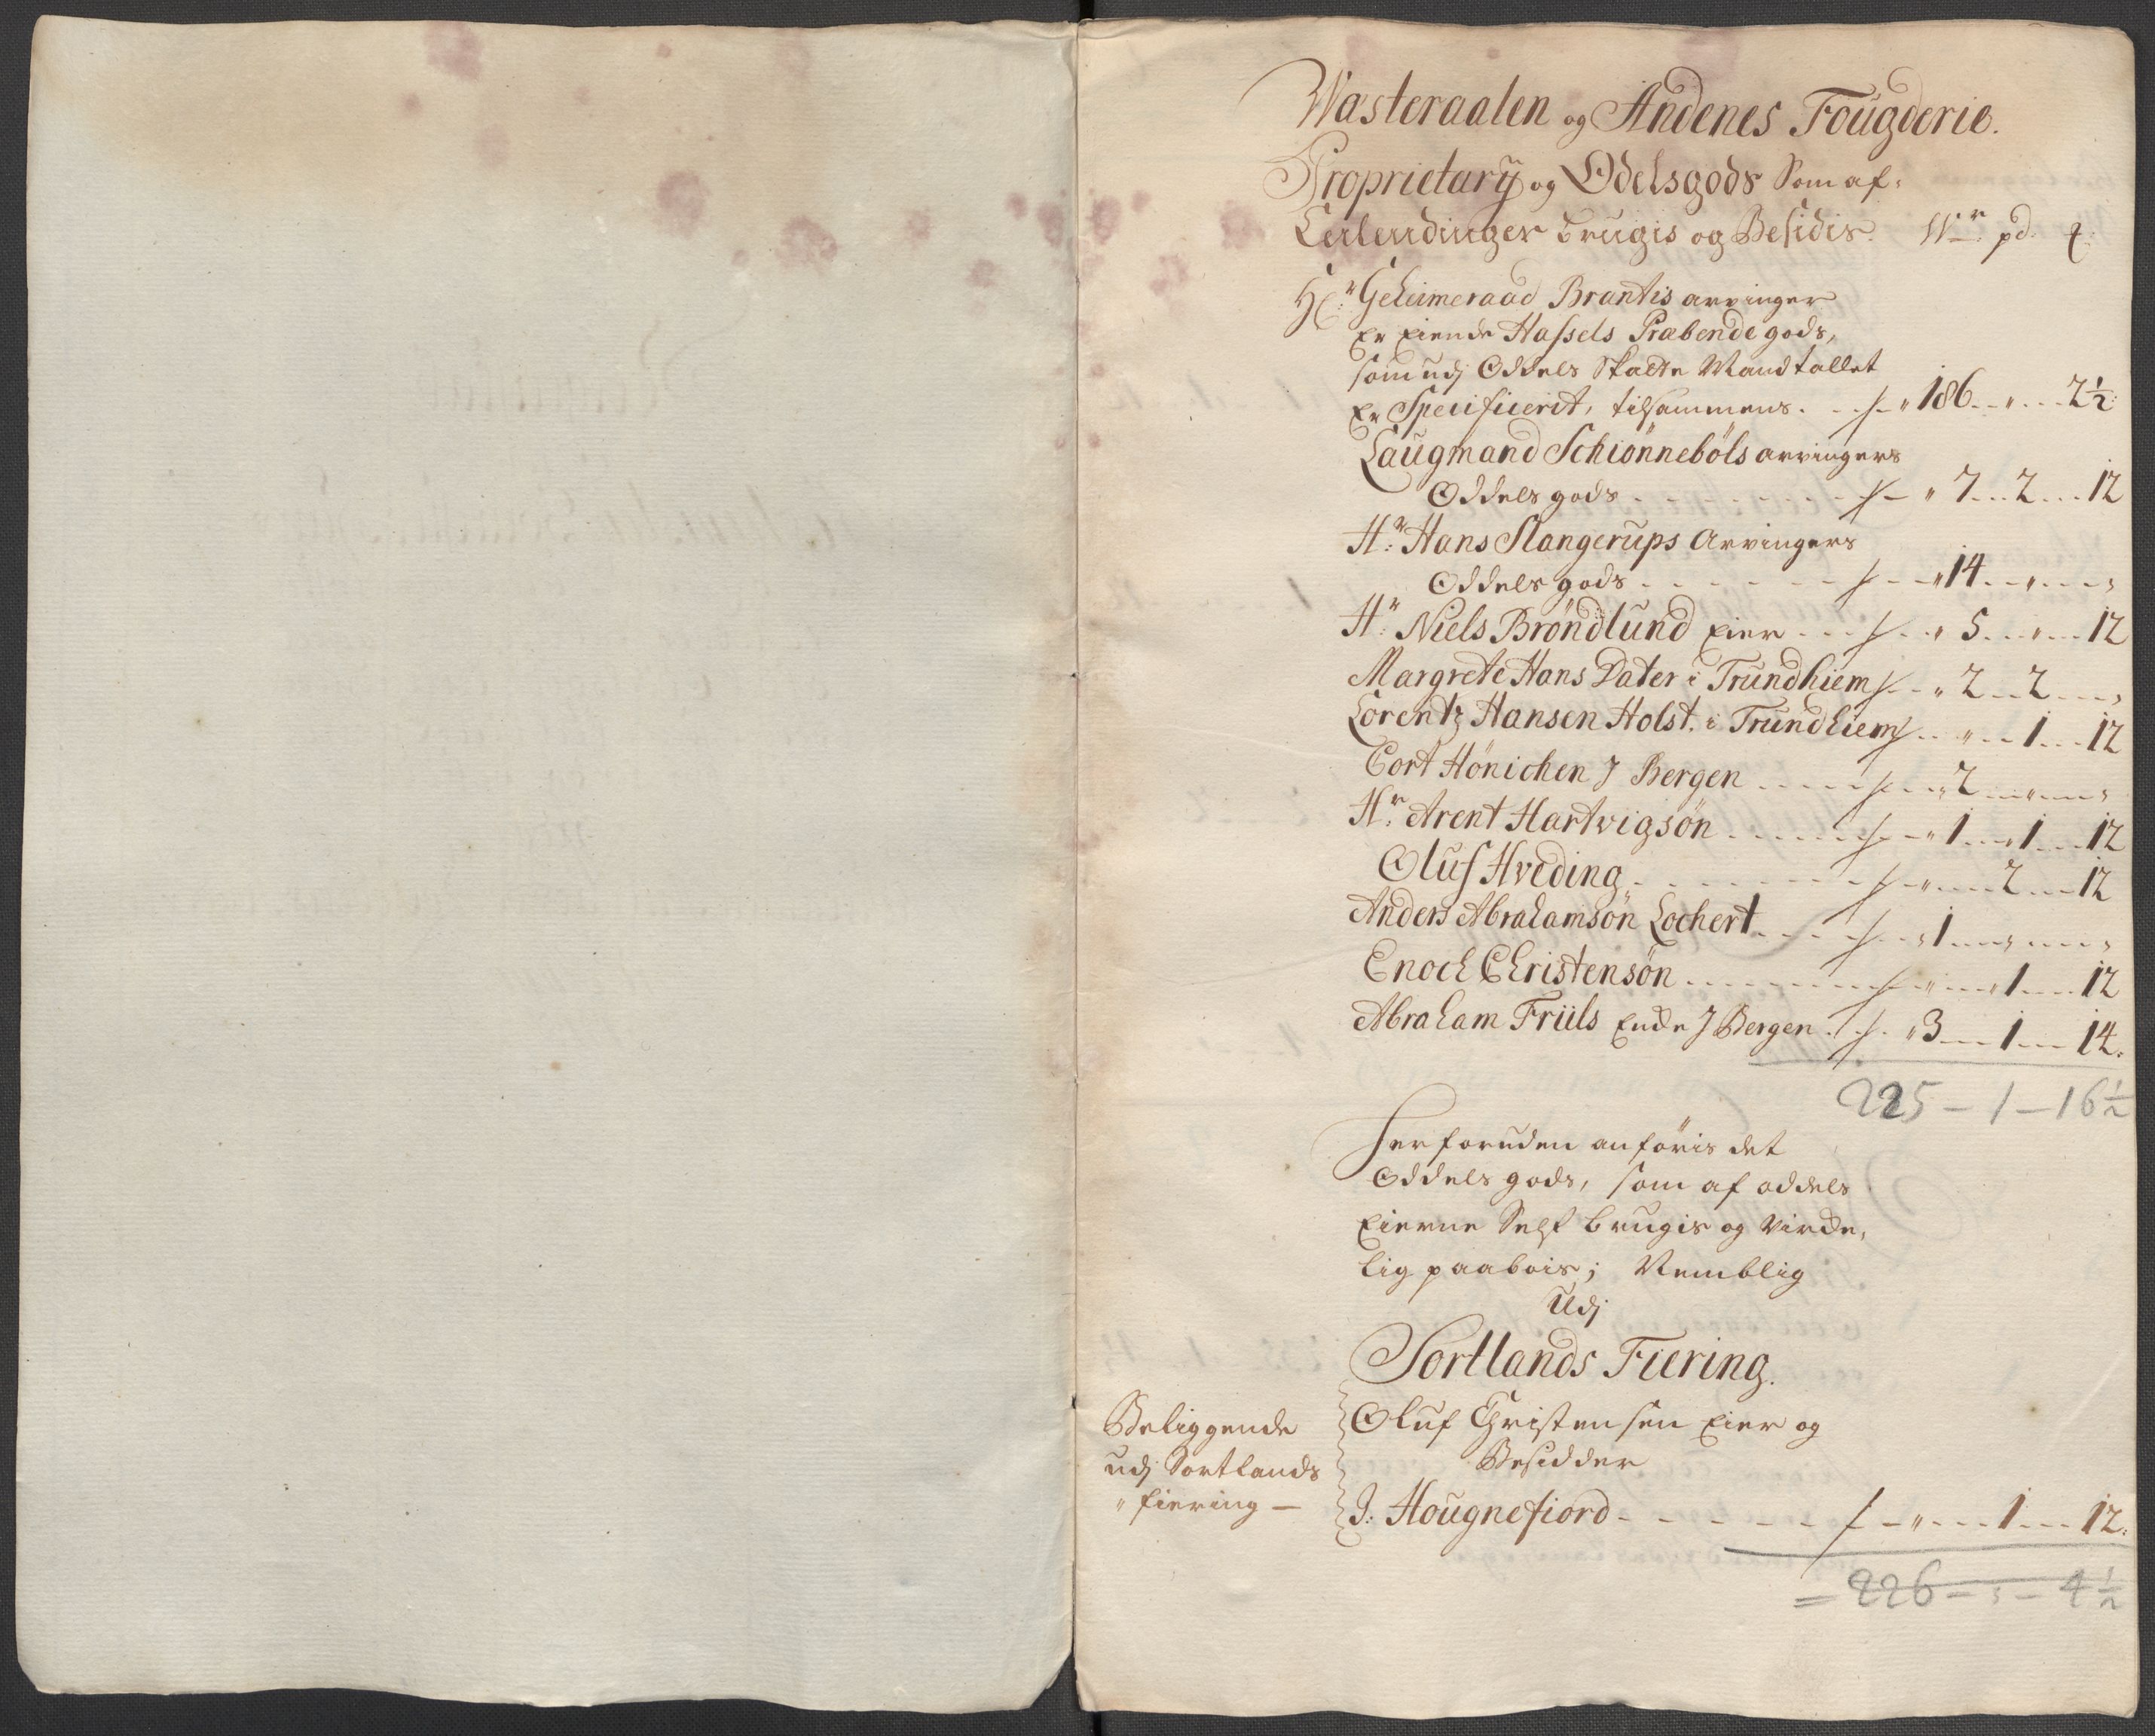 Wasteraalen og Andenes Fougderie.
Proprietarij og Odelsgods Som af
Leilendinger brugis og Besidis. Wr: pd: ₰:
Hr: Geheimeraad Brantis arvinger
Er Eiende Hassels Præbende gods,
som udj Oddels Skatte Mandtallet
Er Specificerit, tilsammens . . 186 . . „ . . 2½
Laugmand Schiønnebøls arvingers
Oddels gods . . . „ 7 . . 2 . . 12
Hr: Hans Slangerups Arvingers
Oddels gods . . . „ 14 . . „ . . „
Hr: Niels Brøndlund Eier . . . „ 5 . . „ . . 12
Margrete Hans Dater i Trundhiem . . „ 2 . . 2 . . „
Lorentz Hansen Holst. i Trundhiem . . „ . . 1 . . 12
Cort Hønichen J Bergen . . . „ 2 . . „ . . „
Hr: Arent Hartvigsøn . . . „ 1 . . 1 . . 12
Oluf Hveding . . . „ . . 2 . . 12
Anders Abrahamsøn Lochert . . . „ 1 . . „ . . „
Enoch Christensøn . . . „ . . 1 . . 12
Abraham Friils Encke J Bergen . . „ 3 . . 1 . . 14.
225 – 1 – 16½
Herforuden anføris det
Oddels gods, som af oddels
Eierne Self brugis og Virke,
lig paabois; Nemblig
Udj
Sortlands Fiering.
Beliggende
udj Sortlands
„ fiering —
Oluf Christensen Eier og
Besidder
J: Hougnefiord . . . „ . . 1 . . 12.
= 226 – „ – 4½